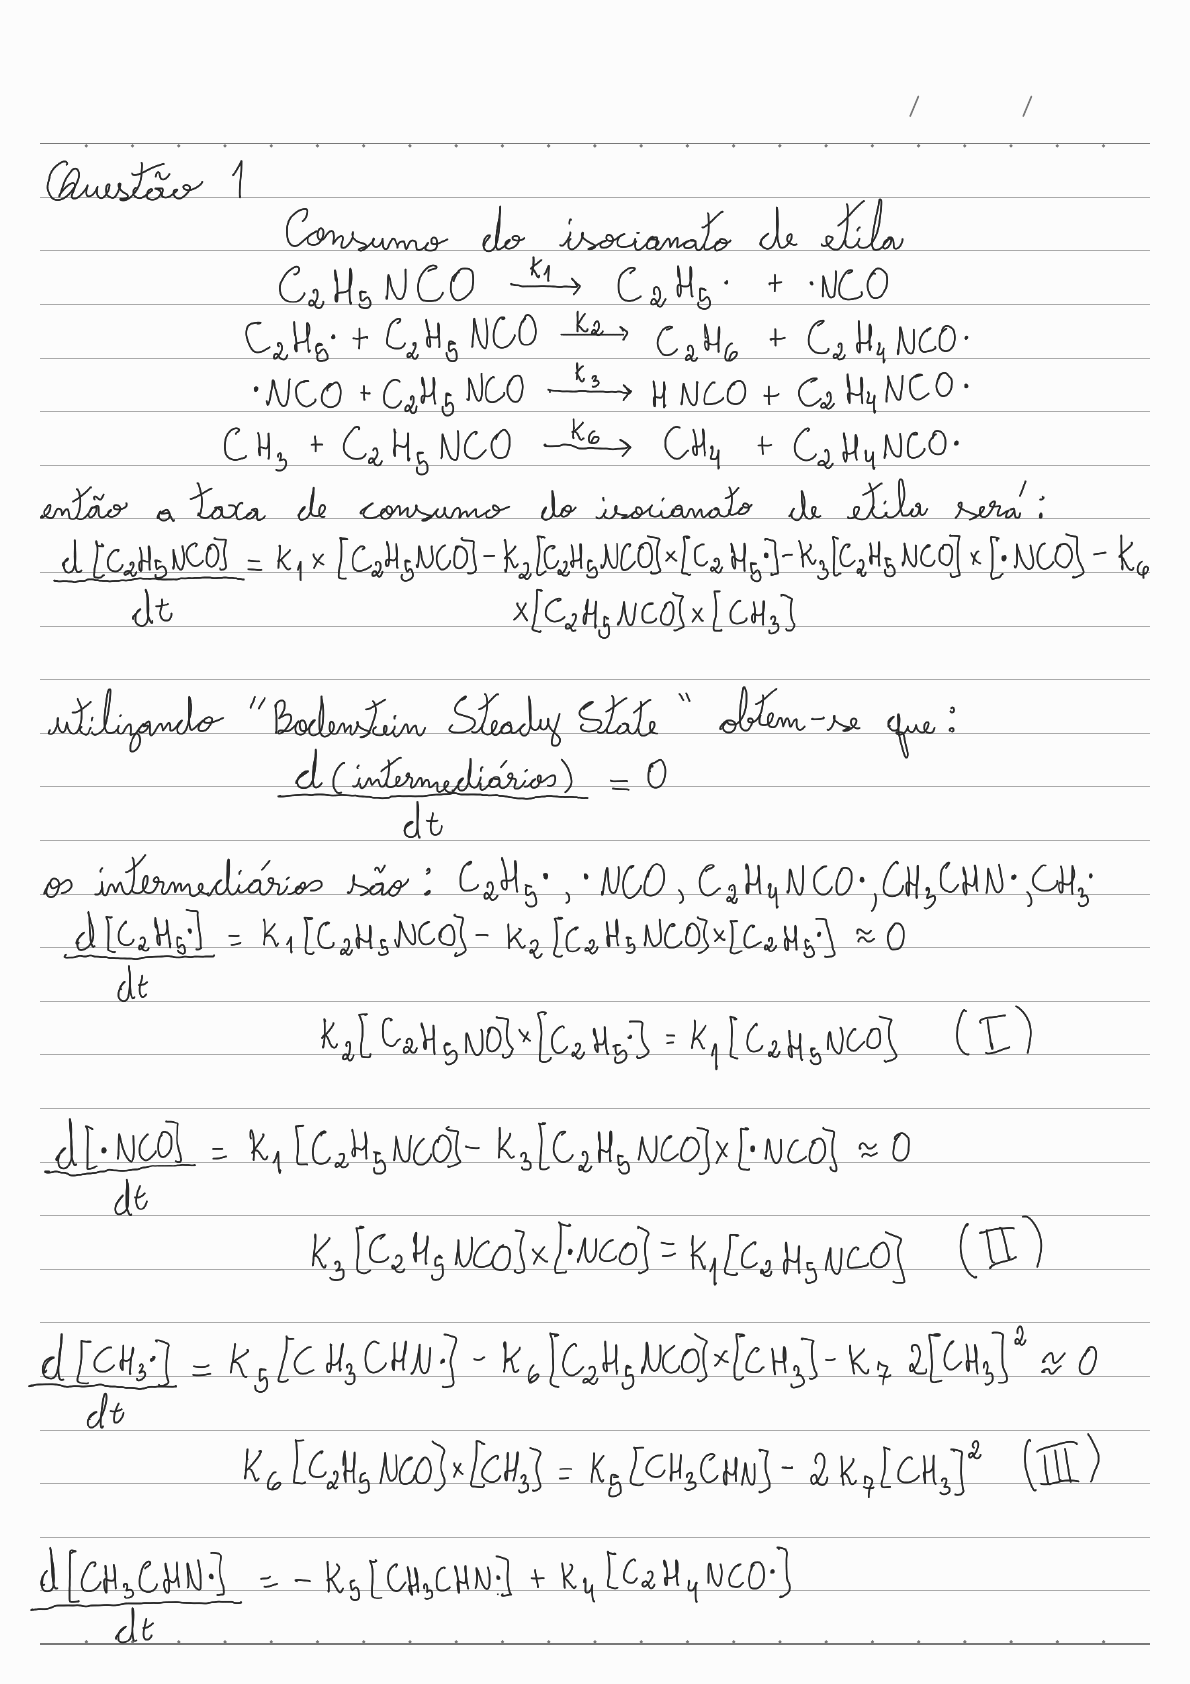 / /
Questão 1
Consumo do isocianato de etila
C₂H₅NCO —K₁→ C₂H₅· + ·NCO
C₂H₅· + C₂H₅NCO —K₂→ C₂H₆ + C₂H₄NCO·
·NCO + C₂H₅NCO —K₃→ HNCO + C₂H₄NCO·
CH₃ + C₂H₅NCO —K₆→ CH₄ + C₂H₄NCO·
então a taxa de consumo do isocianato de etila será:
d[C₂H₅NCO]/dt = K₁×[C₂H₅NCO]-K₂[C₂H₅NCO]×[C₂H₅·]-K₃[C₂H₅NCO]×[·NCO]-K₆
×[C₂H₅NCO]×[CH₃]
utilizando "Bodenstein Steady State" obtem-se que:
d(intermediários)/dt = 0
os intermediários são: C₂H₅·, ·NCO, C₂H₄NCO·, CH₃CHN·, CH₃·
d[C₂H₅·]/dt = K₁[C₂H₅NCO]-K₂[C₂H₅NCO]×[C₂H₅·] ≈ 0
K₂[C₂H₅NO]×[C₂H₅·] = K₁[C₂H₅NCO] (I)
d[·NCO]/dt = K₁[C₂H₅NCO]-K₃[C₂H₅NCO]×[·NCO] ≈ 0
K₃[C₂H₅NCO]×[·NCO] = K₁[C₂H₅NCO] (II)
d[CH₃·]/dt = K₅[CH₃CHN·]-K₆[C₂H₅NCO]×[CH₃]-K₇ 2[CH₃]² ≈ 0
K₆[C₂H₅NCO]×[CH₃] = K₅[CH₃CHN]-2K₇[CH₃]² (III)
d[CH₃CHN·]/dt = -K₅[CH₃CHN·] + K₄[C₂H₄NCO·]